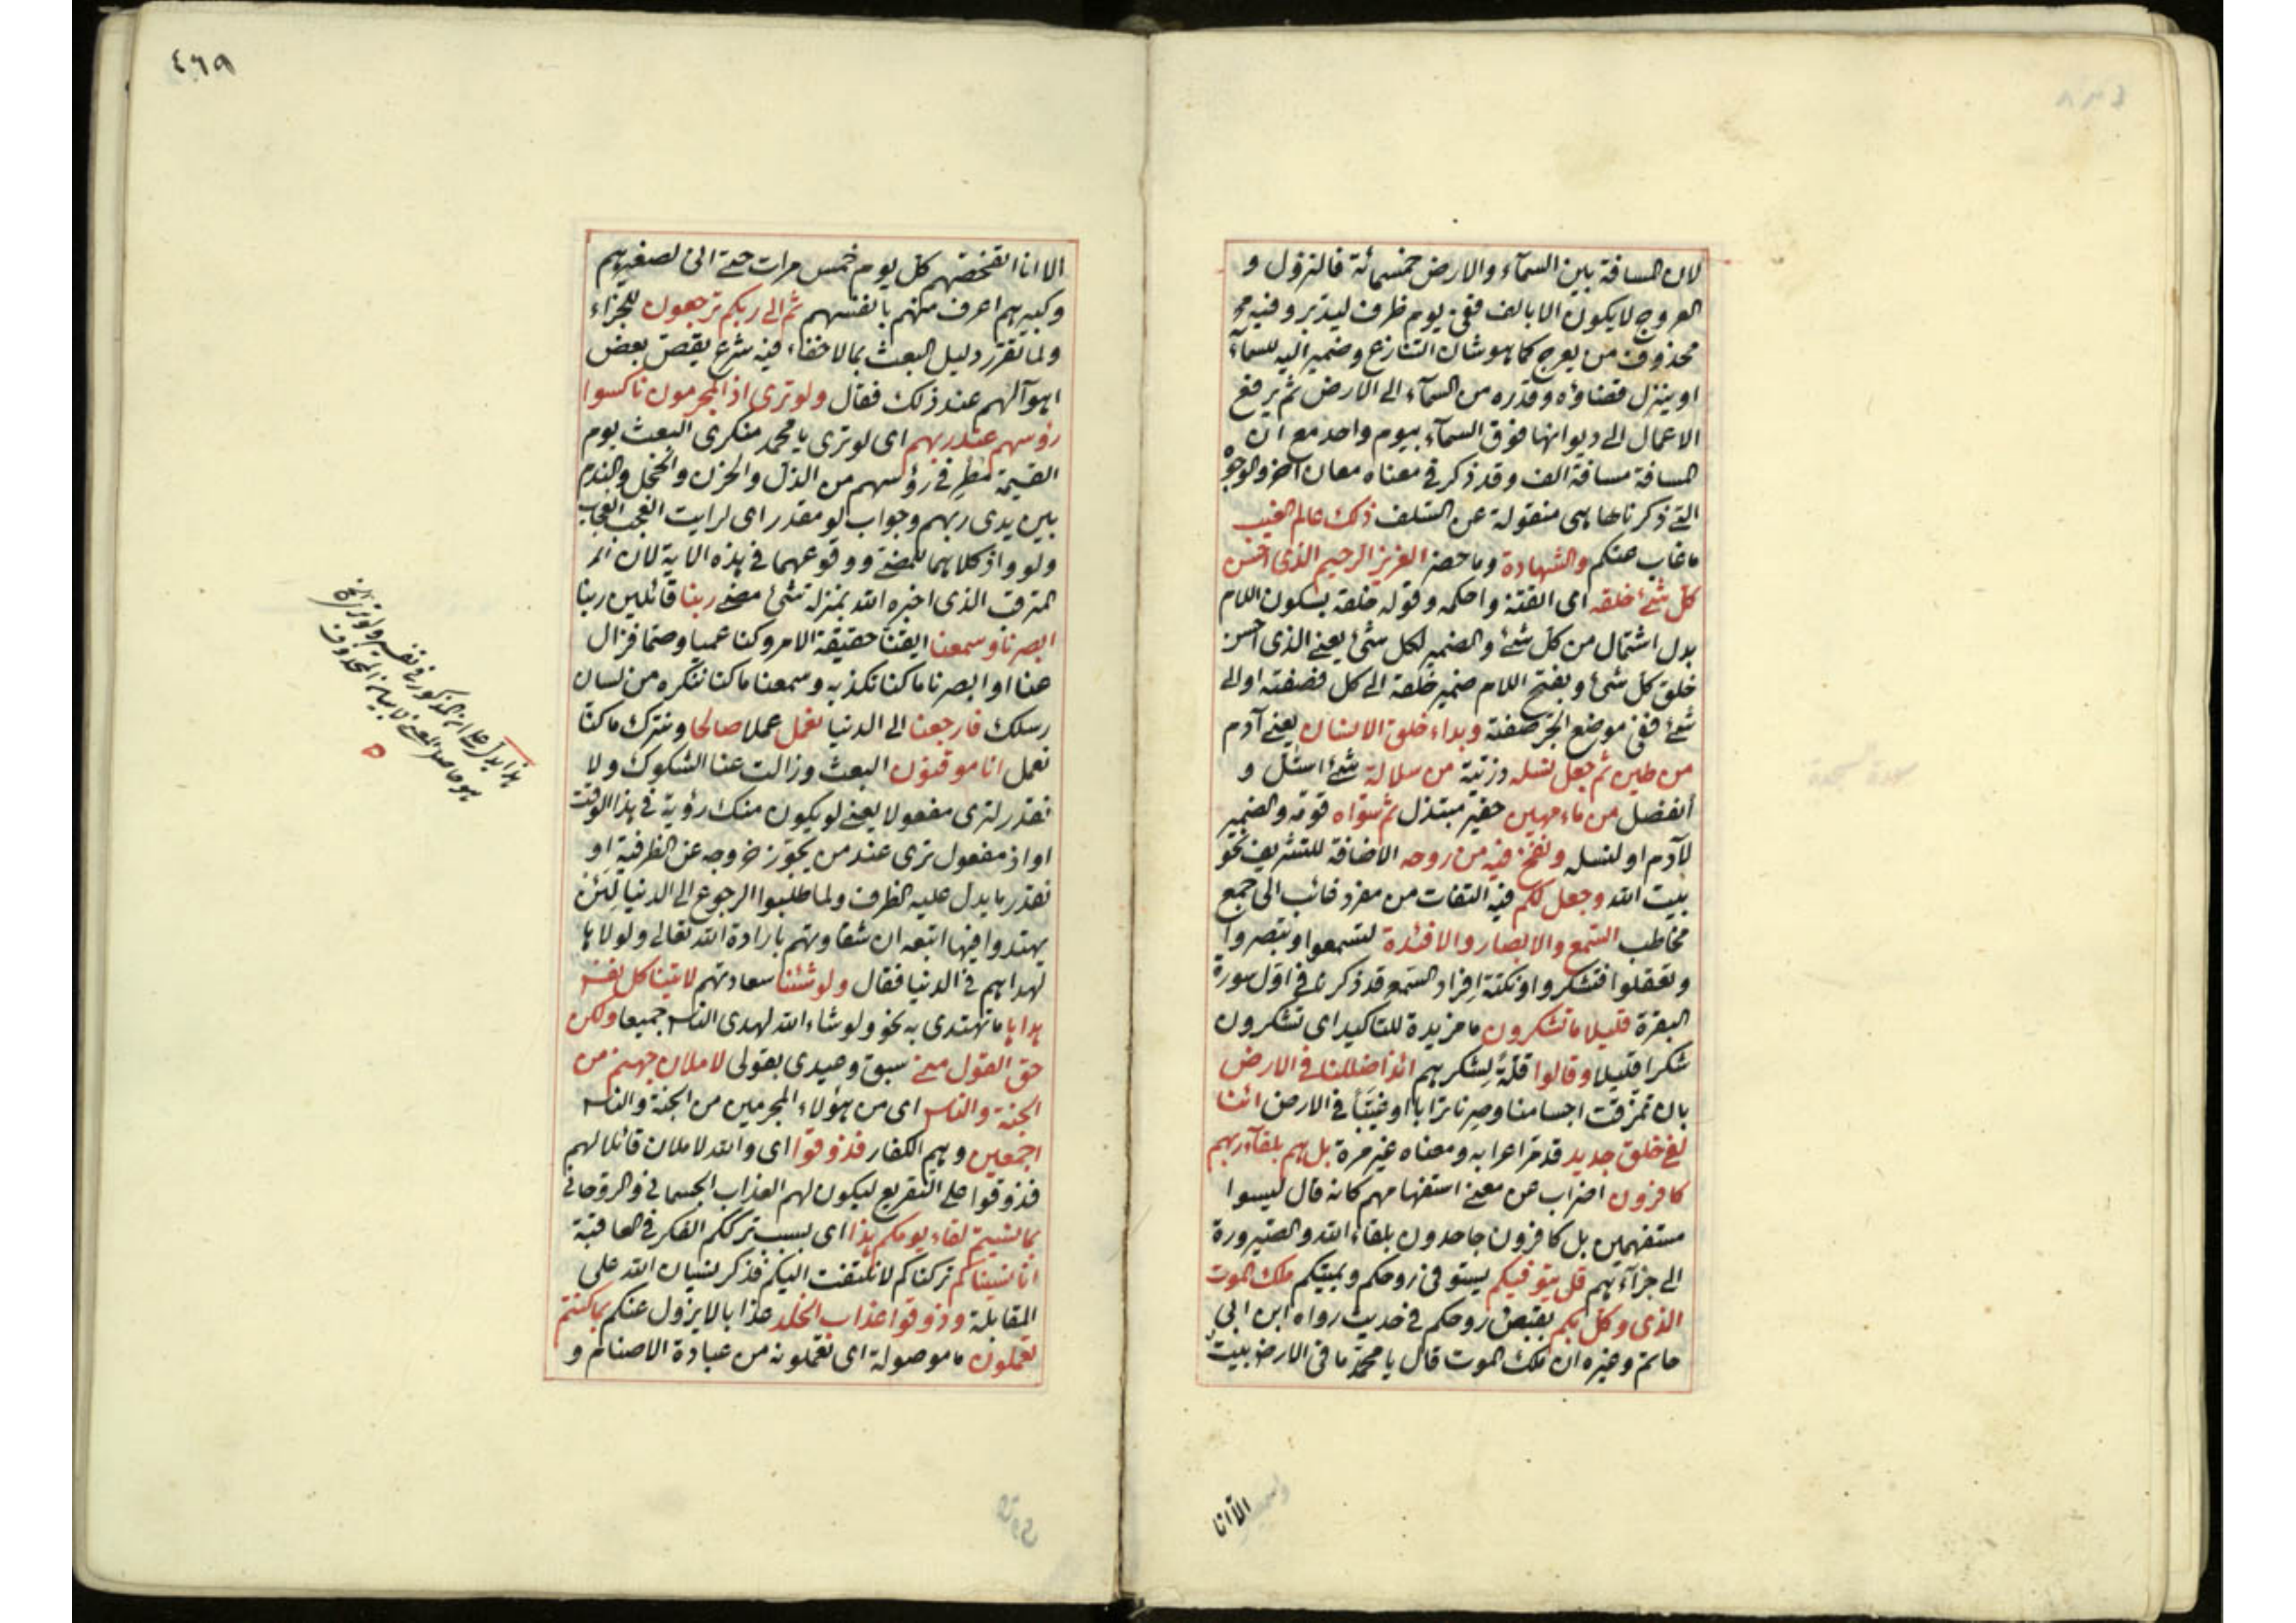 لان المسافة بين السمآء والارض خمسمائة فالنزول و
العروج لا يكون الا بالف ففي يوم ظرف ليدبر وفيه
محذوف من يعرج كما هو شان التنازع وضمير اليه للسمآء
او ينزل قضاؤه وقدره من السمآء الى الارض ثم يرفع
الاعمال الى ديوانها فوق السمآء بيوم واحد مع ان
المسافة مسافة الف وقد ذكر في معناه معان آخر والوجوه
التي ذكرناها هي منقولة عن السلف ذلك عالم الغيب
ما غاب عنكم والشهادة وما حضر العزيز الرحيم الذى احسن
كل شئ خلقه اى اتقنه واحكمه وقوله خلقه بسكون اللام
بدل اشتمال من كل شئ والضمير لكل شئ يعنى الذى احسن
خلق كل شئ وبفتح اللام ضمير خلقه الى كل فصفته او الى
شئ ففي موضع الجر صفته وبداء خلق الانسان يعنى آدم
من طين ثم جعل نسله ذريته من سلالة شئ استل و
انفصل من ماء مهين حقير مبتذل ثم سواه قومه والضمير
لآدم او لنسله ونفخ فيه من روحه الاضافة للتشريف نحو
بيت الله وجعل لكم فيه التفات من مفرد غائب الى جمع
مخاطب السمع والابصار والافئدة لتسمعوا وتبصروا
وتعقلوا فتشكروا ونكتة افراد السمع قد ذكر في اول سورة
البقرة قليلا ما تشكرون ما مزيدة للتاكيد اى تشكرون
شكرا قليلا وقالوا قلة لشكرهم ائذا ضللنا في الارض
بان تمزقت اجسامنا وصرنا ترابا او غيبنا في الارض ائنا
لفى خلق جديد قد مر اعرابه ومعناه غير مرة بل هم بلقآء ربهم
كافرون اضراب عن معنى استفهامهم كانه قال ليسوا
مستفهمين بل كافرون جاحدون بلقاء الله والصيرورة
الى جزآءهم قل يتوفيكم يستوفى روحكم ويميتكم ملك الموت
الذى وكل بكم بقبض روحكم في حديث رواه ابن ابي
حاتم وغيره ان ملك الموت قال يا محمد ما في الارض بيت
الا انا
٤٦٩
الا انا اتفحصهم كل يوم خمس مرات حتى انى لصغيرهم
وكبيرهم اعرف منهم بانفسهم ثم الى ربكم ترجعون للجزاء
ولما تقرر دليل البعث بما لا خفاء فيه شرع يقص بعض
اهوآلهم عند ذلك فقال ولو ترى اذ المجرمون ناكسوا
رؤسهم عند ربهم اى لو ترى يا محمد منكرى البعث يوم
القيمة مطرقى رؤسهم من الذل والحزن والخجل والندم
بين يدى ربهم وجواب لو مقدر اى لرايت العجب العجاب
ولو واذ كلاهما للمضى ووقوعهما في هذه الاية لان الامر
المترقب الذى اخبره الله بمنزلة شئ مضى ربنا قائلين ربنا
ابصرنا وسمعنا ايقنا حقيقة الامر وكنا عميا وصما فزال
عنا او ابصرنا ما كنا نكذبه وسمعنا ما كنا ننكره من لسان
رسلك فارجعنا الى الدنيا نعمل عملا صالحا ونترك ما كنا
نعمل انا موقنون البعث وزالت عنا الشكوك ولا
نقدر لترى مفعولا يعنى لو يكون منك رؤية في هذا الوقت
او اذ مفعول ترى عند من يجوز خروجه عن الظرفية او
نقدر ما يدل عليه الظرف ولما طلبوا الرجوع الى الدنيا لئن
يهتدوا فيها اتبعه ان شقاوتهم بارادة الله تعالى ولولاها
لهداهم في الدنيا فقال ولو شئنا سعادتهم لاتينا كل نفس
هداها ما تهتدى به نحو ولو شاء الله لهدى الناس جميعا ولكن
حق القول منى سبق وعيدى بقولى لاملان جهنم من
الجنة والناس اى من هؤلاء المجرمين من الجنة والناس
اجمعين وهم الكفار فذوقوا اى والله لاملان قائلا لهم
فذوقوا على التقريع ليكون لهم العذاب الجسمانى والروحانى
بما نسيتم لقاء يومكم هذا اى بسبب ترككم الفكر في العاقبة
انا نسيناكم تركناكم لا نلتفت اليكم فذكر نسيان الله على
المقابلة وذوقوا عذاب الخلد عذابا لا يزول عنكم بما كنتم
تعملون ما موصولة اى تعملونه من عبادة الاصنام و